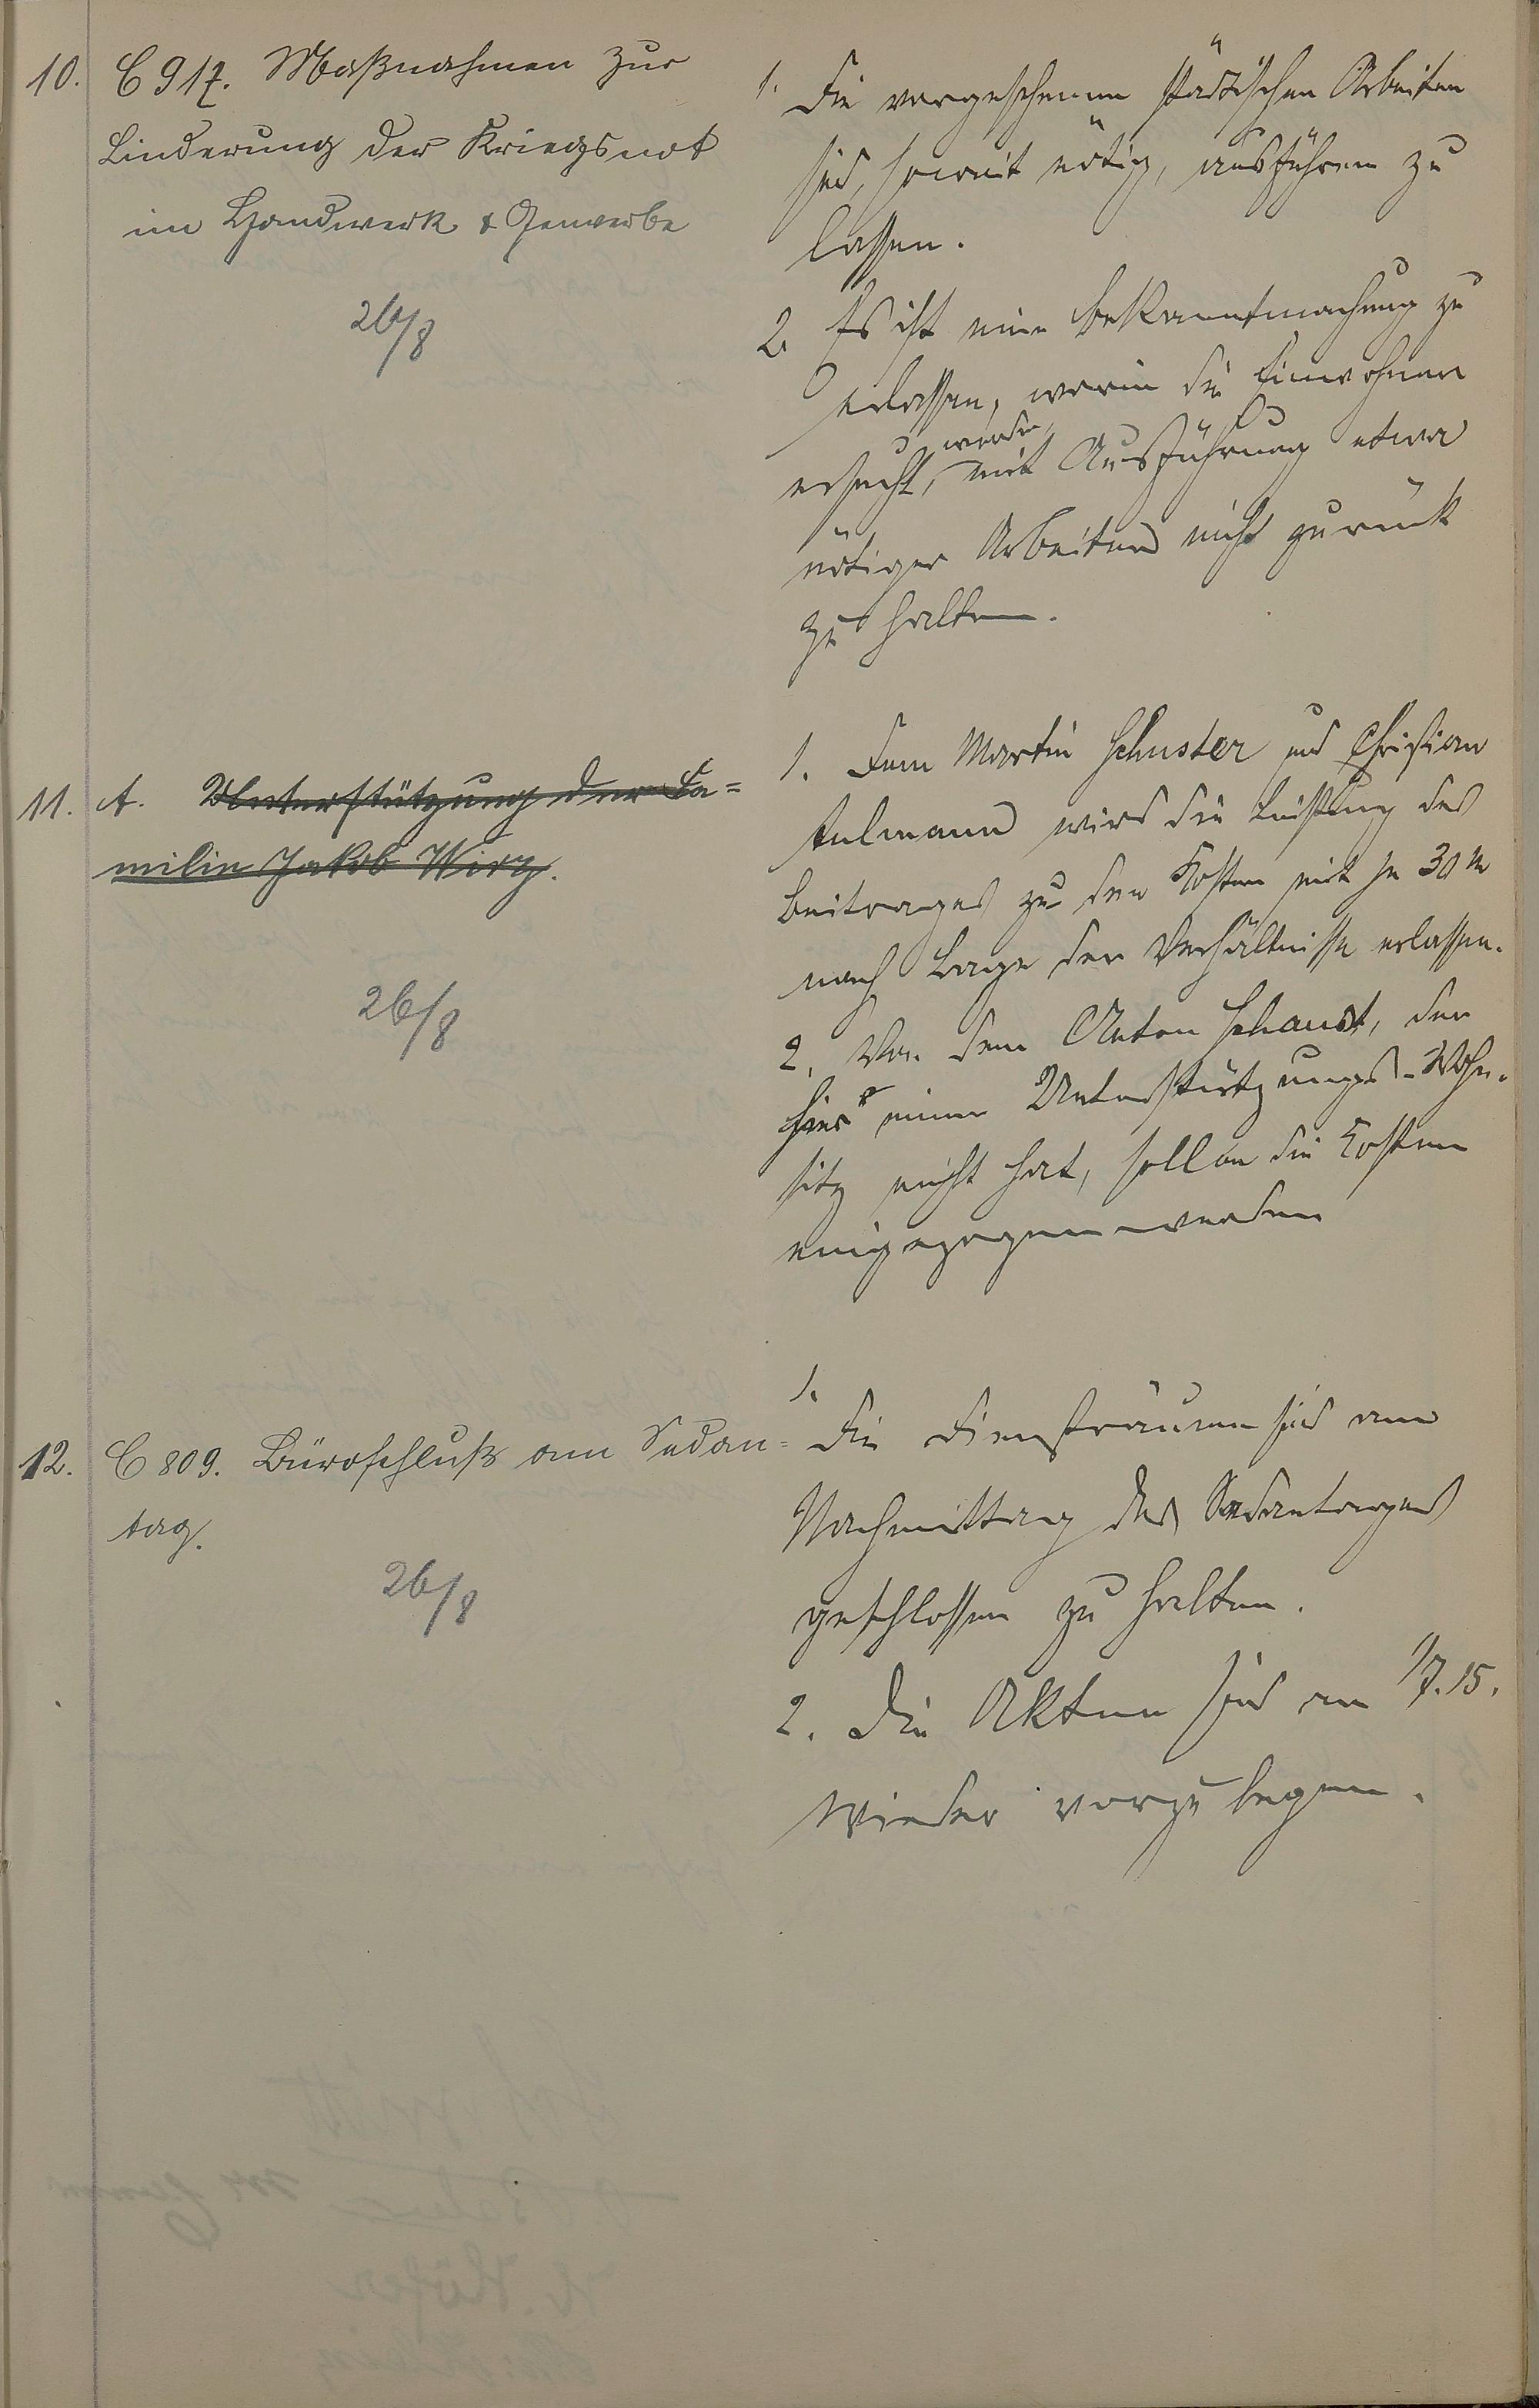 10. C 917. Maßnahmen zur
Linderung der Kriegsnot
im Handwerk & Gewerbe
26/8
1. Die vorgesehenen städtischen Arbeiten
sind, soweit nötig, ausführen zu
lassen.
2. Es ist eine Bekanntmachung zu
erlassen, worin die Einwohner
ersucht werden, mit Ausführung etwa
nötiger Arbeiten nicht zurück
zu halten.
11. A. Unterstützung der Fa=
milie Jakob Wirz.
26/8
1. Dem Martin Schuster und Christian
wird die Leistung des
Beitrages zu den Kosten mit je 30 M
nach Lage der Verhältnisse erlassen.
2. Von dem Anton Schaust, der
hier einen Unterstützungs-Wohn-
sitz nicht hat, sollen die Kosten
eingezogen werden
12. C 809. Büroschluß am Sedan=
tag.
26/8
1.
Die Diensträume sind am
Nachmittag des Sedantages
geschlossen zu halten.
2. Die Akten sind am 1/7.15.
wieder vorzulegen.